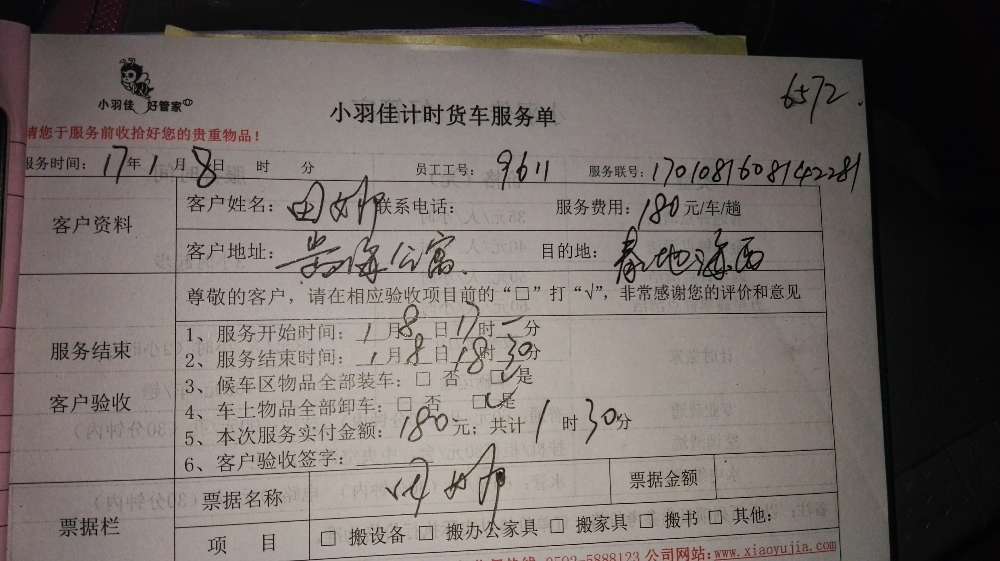 6572.
小羽佳 好管家
小羽佳计时货车服务单
请您于服务前收拾好您的贵重物品!
服务时间: 17年 1月 8日 时 分 员工工号: 9611 服务联号: 1701081608142281
客户资料
客户姓名: 田 联系电话: 服务费用: 180元/车/趟
客户地址: 公寓 目的地: 泰地海西
尊敬的客户,请在相应验收项目前的“□”打“√”,非常感谢您的评价和意见
服务结束
客户验收
1、服务开始时间: 1月 8日 17时 一分
2、服务结束时间: 1月 8日 18时 30分
3、候车区物品全部装车: □ 否 □√是
4、车上物品全部卸车: □ 否 □√是
5、本次服务实付金额: 180元; 共计 1时 30分
6、客户验收签字:
票据栏
票据名称 票据金额
项 目 □ 搬设备 □ 搬办公家具 □ 搬家具 □ 搬书 □ 其他:
0592-5888123 公司网站:www.xiaoyujia.com